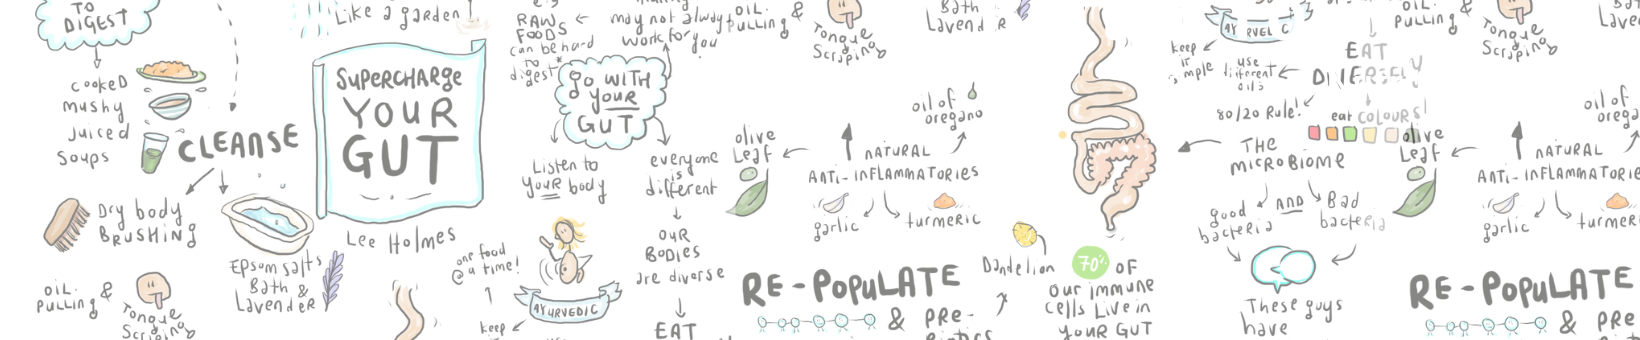 TO
DIGEST
cooked
mushy
juiced
soups
CLEANSE
Dry body
BRUSHING
EPSOM SALTS
Bath &
LavendeR
OIL.
PULLING &
Tongue
Scraping
Like a garden!
SUPERCHARGE
YOUR
GUT
Lee Holmes
RAW
FOODS
can be hard
to
digest
may not always
work for you
go WITH
youR
GUT
Listen to
youR body
everyone
is
different
OUR
BODIES
are diverse
EAT
one food
@ a time!
AYURVEDIC
keep
OIL.
PULLING &
Tongue
Scraping
Bath
Lavender
olive
Leaf
oil of
oregano
NATURAL
ANTI-INFLAMMATORIES
garlic
turmeric
RE-POPULATE
& PRE-
Dandelion
70% OF
our immune
cells Live in
youR GUT
keep
it
simple
use
different
oils
EAT
DIVERSELY
80/20 Rule!
eat COLOURS!
THE
MICROBIOME
good
bacteria
AND
Bad
bacteria
These guys
have
OIL.
PULLING &
Tongue
Scraping
Bath
olive
Leaf
oil of
NATURAL
ANTI-INFLAMMATORIE
garlic
RE-POPULATE
& PRe